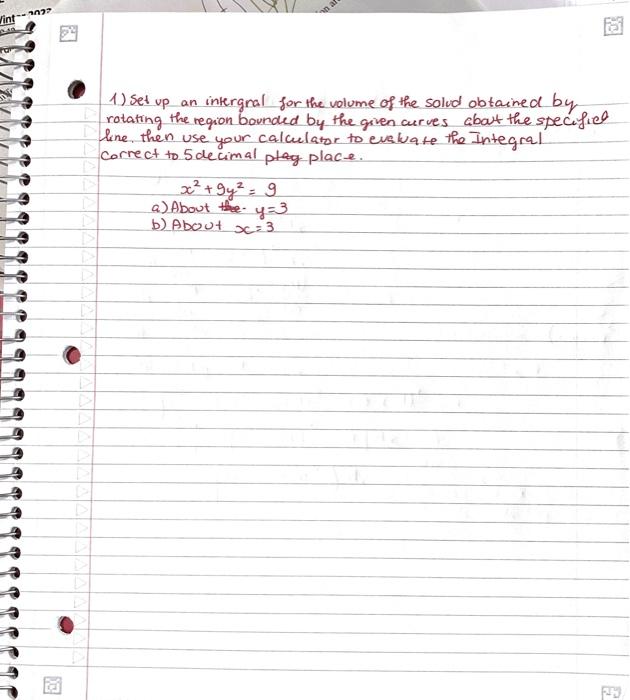 1) Set up an intergral for the volume of the solvd obtained by
rotating the region bounded by the given curves about the specified
line, then use your calculator to evaluate the Integral
correct to 5 decimal place.
x² + 9y² = 9
a) About y=3
b) About x=3